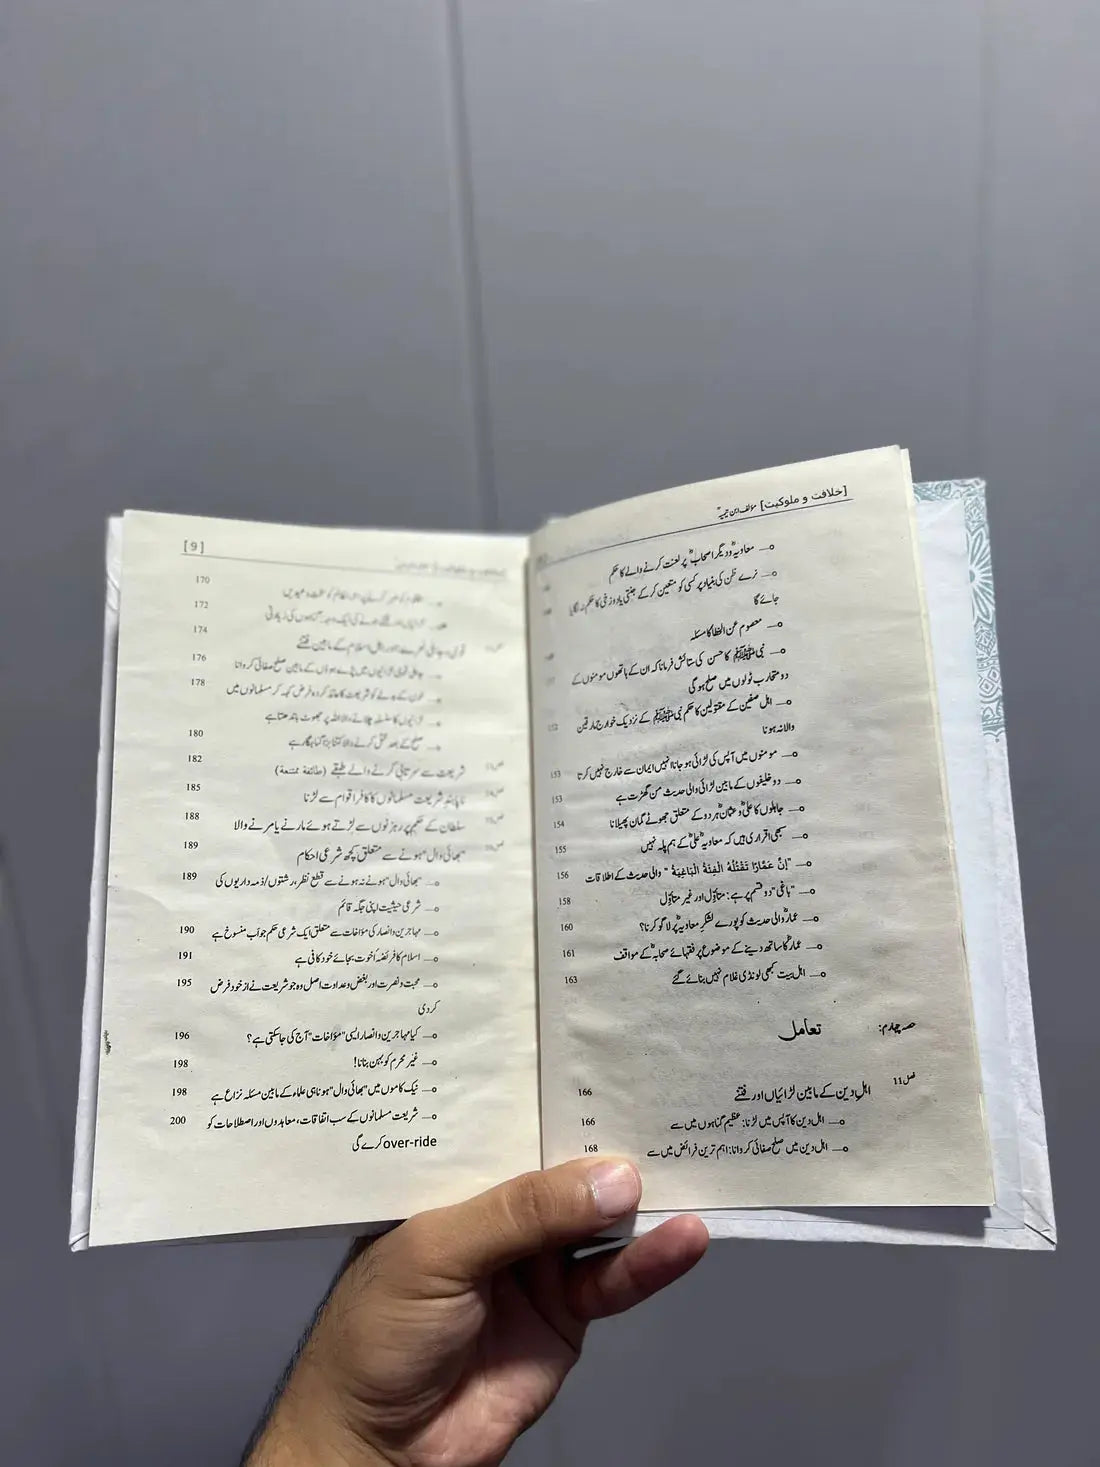 [خلافت و ملوکیت] مؤلف ابن تیمیہؒ
معاویہؓ ودیگر اصحابؓ پر لعنت کرنے والے کا حکم
نرے ظن کی بنیاد پر کسی کو متعین کرکے جنتی یا دوزخی کا حکم نہ لگایا
جائے گا
معصوم عن الخطا کا مسئلہ
نبی ﷺ کا حسن کی ستائش فرمانا کہ ان کے ہاتھوں مومنوں کے
دو متحارب ٹولوں میں صلح ہوگی
اہل صفین کے مقتولین کا حکم نبی ﷺ کے نزدیک خوارج مارقین 152
والا نہ ہونا
مومنوں میں آپس کی لڑائی ہوجانا انہیں ایمان سے خارج نہیں کرتا 153
دو خلیفوں کے مابین لڑائی والی حدیث من گھڑت ہے 153
جاہلوں کا علیؓ وعثمانؓ ہر دو کے متعلق جھوٹے گمان پھیلانا 154
سبھی اقراری ہیں کہ معاویہؓ علیؓ کے ہم پلہ نہیں 155
"إِنَّ عَمَّارًا تَقْتُلُهُ الْفِئَةُ الْبَاغِيَةُ" والی حدیث کے اطلاقات 156
"باغی" دو قسم پر ہے: متاَوِّل اور غیر متاَوِّل 158
عمارؓ والی حدیث کو پورے لشکرِ معاویہؓ پر لاگو کرنا؟ 160
عمارؓ کا ساتھ دینے کے موضوع پر فقہائے صحابہؓ کے مواقف 161
اہل بیت کبھی لونڈی غلام نہیں بنائے گئے 163
حصہ چہارم: تعامل
فصل 11 اہلِ دین کے مابین لڑائیاں اور فتنے 166
اہل دین کا آپس میں لڑنا: عظیم گناہوں میں سے 166
اہل دین میں صلح صفائی کروانا: اہم ترین فرائض میں سے 168
[9]
170
172
قومی وجاہلی نعرے اور اہل اسلام کے مابین فتنے 174
جاہلی قبائلی لڑائیوں میں پڑے ہوؤں کے مابین صلح صفائی کروانا 176
خون کے بدلے کو شریعت کا عائد کردہ فرض کہہ کر مسلمانوں میں 178
لڑائیوں کا سلسلہ چلانے والا اللہ پر جھوٹ باندھتا ہے
صلح کے بعد قتل کرنے والا کتنا بڑا گناہگار ہے 180
شریعت سے سرتابی کرنے والے طبقے (طائفة ممتنعة) 182
ناپابندِ شریعت مسلمانوں کا کافر اقوام سے لڑنا 185
سلطان کے حکم پر رہزنوں سے لڑتے ہوئے مارنے یا مرنے والا 188
"بھائی وال" ہونے سے متعلق کچھ شرعی احکام 189
"بھائی وال" ہونے نہ ہونے سے قطع نظر، رشتوں/ذمہ داریوں کی 189
شرعی حیثیت اپنی جگہ قائم
مہاجرین وانصار کی مؤاخات سے متعلق ایک شرعی حکم جو اَب منسوخ ہے 190
اسلام کا فریضۂ اُخوت بجائے خود کافی ہے 191
محبت ونصرت اور بغض وعداوت اصل وہ جو شریعت نے از خود فرض 195
کردی
کیا مہاجرین وانصار ایسی "مؤاخات" آج کی جاسکتی ہے؟ 196
غیر محرم کو بہن بنانا! 198
نیک کاموں میں "بھائی وال" ہونا ہی علماء کے مابین مسئلہ نزاع ہے 198
شریعت مسلمانوں کے سب اتفاقات، معاہدوں اور اصطلاحات کو 200
over-ride کرے گی